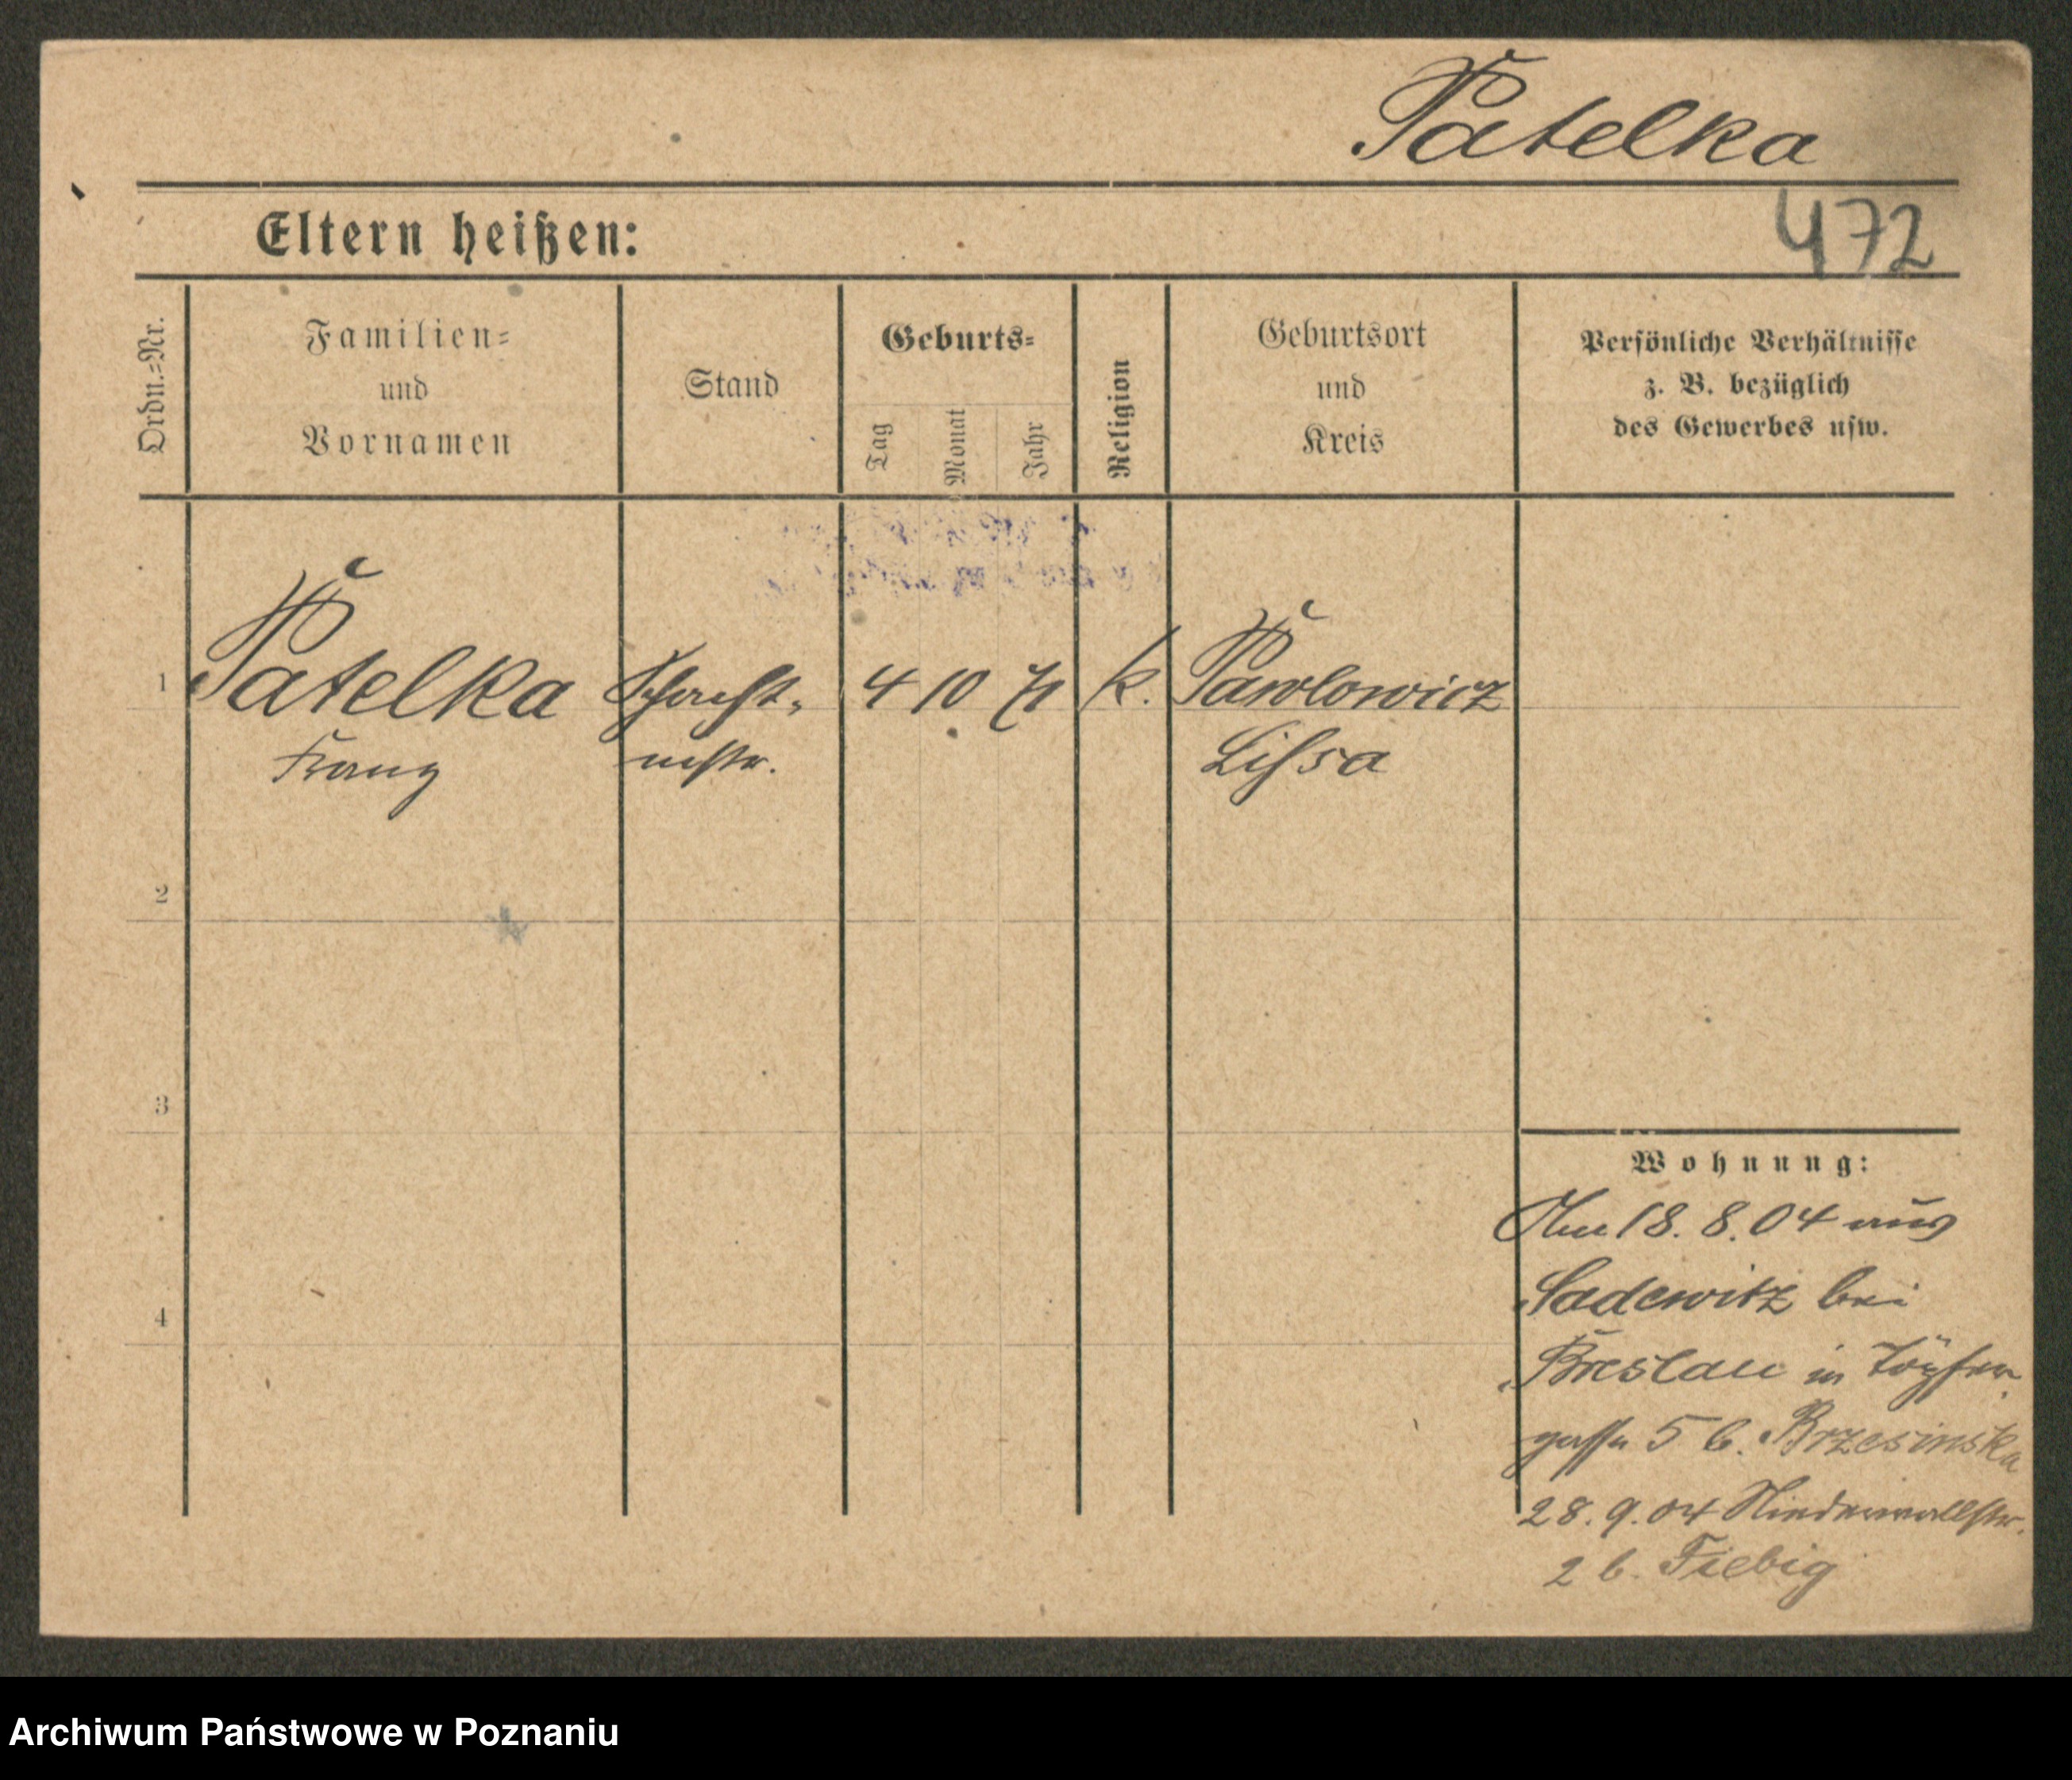 Patelka
Eltern heißen:
472
Ordn.=Nr.
Familien=
und
Vornamen
Stand
Geburts=
Tag
Monat
Jahr
Religion
Geburtsort
und
Kreis
Persönliche Verhältnisse
z. B. bezüglich
des Gewerbes usw.
1
Patelka
Franz
Schacht=
mstr.
4 10 71
k.
Pawlowicz
Lissa
2
3
4
Wohnung:
Am 18. 8. 04 aus
Sadewitz bei
Breslau in Töpfer
gasse 5 b. Brzesinska
28. 9. 04 Niederwallstr.
2 b. Fiebig
Archiwum Państwowe w Poznaniu